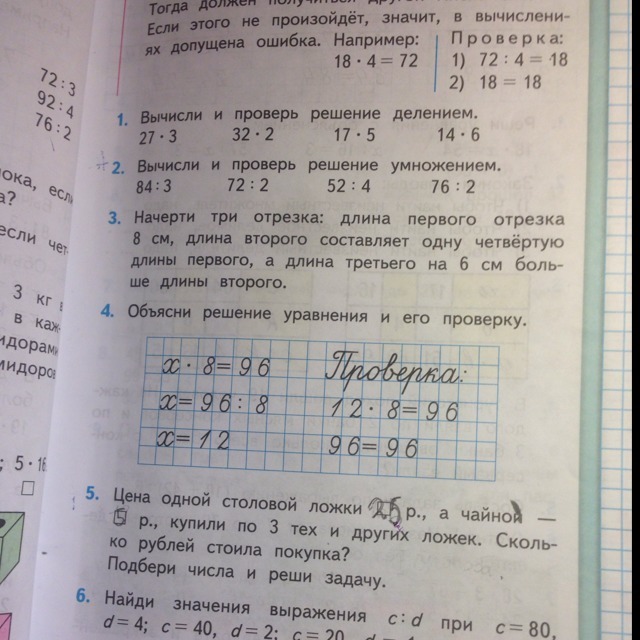 Тогда должен получиться другой
Если этого не произойдёт, значит, в вычислени-
ях допущена ошибка. Например:
18 · 4 = 72
Проверка:
1) 72 : 4 = 18
2) 18 = 18
72 : 3
92 : 4
76 : 2
1. Вычисли и проверь решение делением.
27 · 3 32 · 2 17 · 5 14 · 6
2. Вычисли и проверь решение умножением.
84 : 3 72 : 2 52 : 4 76 : 2
3. Начерти три отрезка: длина первого отрезка
8 см, длина второго составляет одну четвёртую
длины первого, а длина третьего на 6 см боль-
ше длины второго.
3 кг
в каж-
4. Объясни решение уравнения и его проверку.
x · 8 = 96
x = 96 : 8
x = 12
Проверка:
12 · 8 = 96
96 = 96
; 5 · 16
5. Цена одной столовой ложки р., а чайной —
р., купили по 3 тех и других ложек. Сколь-
ко рублей стоила покупка?
Подбери числа и реши задачу.
6. Найди значения выражения c : d при c = 80,
d = 4; c = 40, d = 2; c = 20,